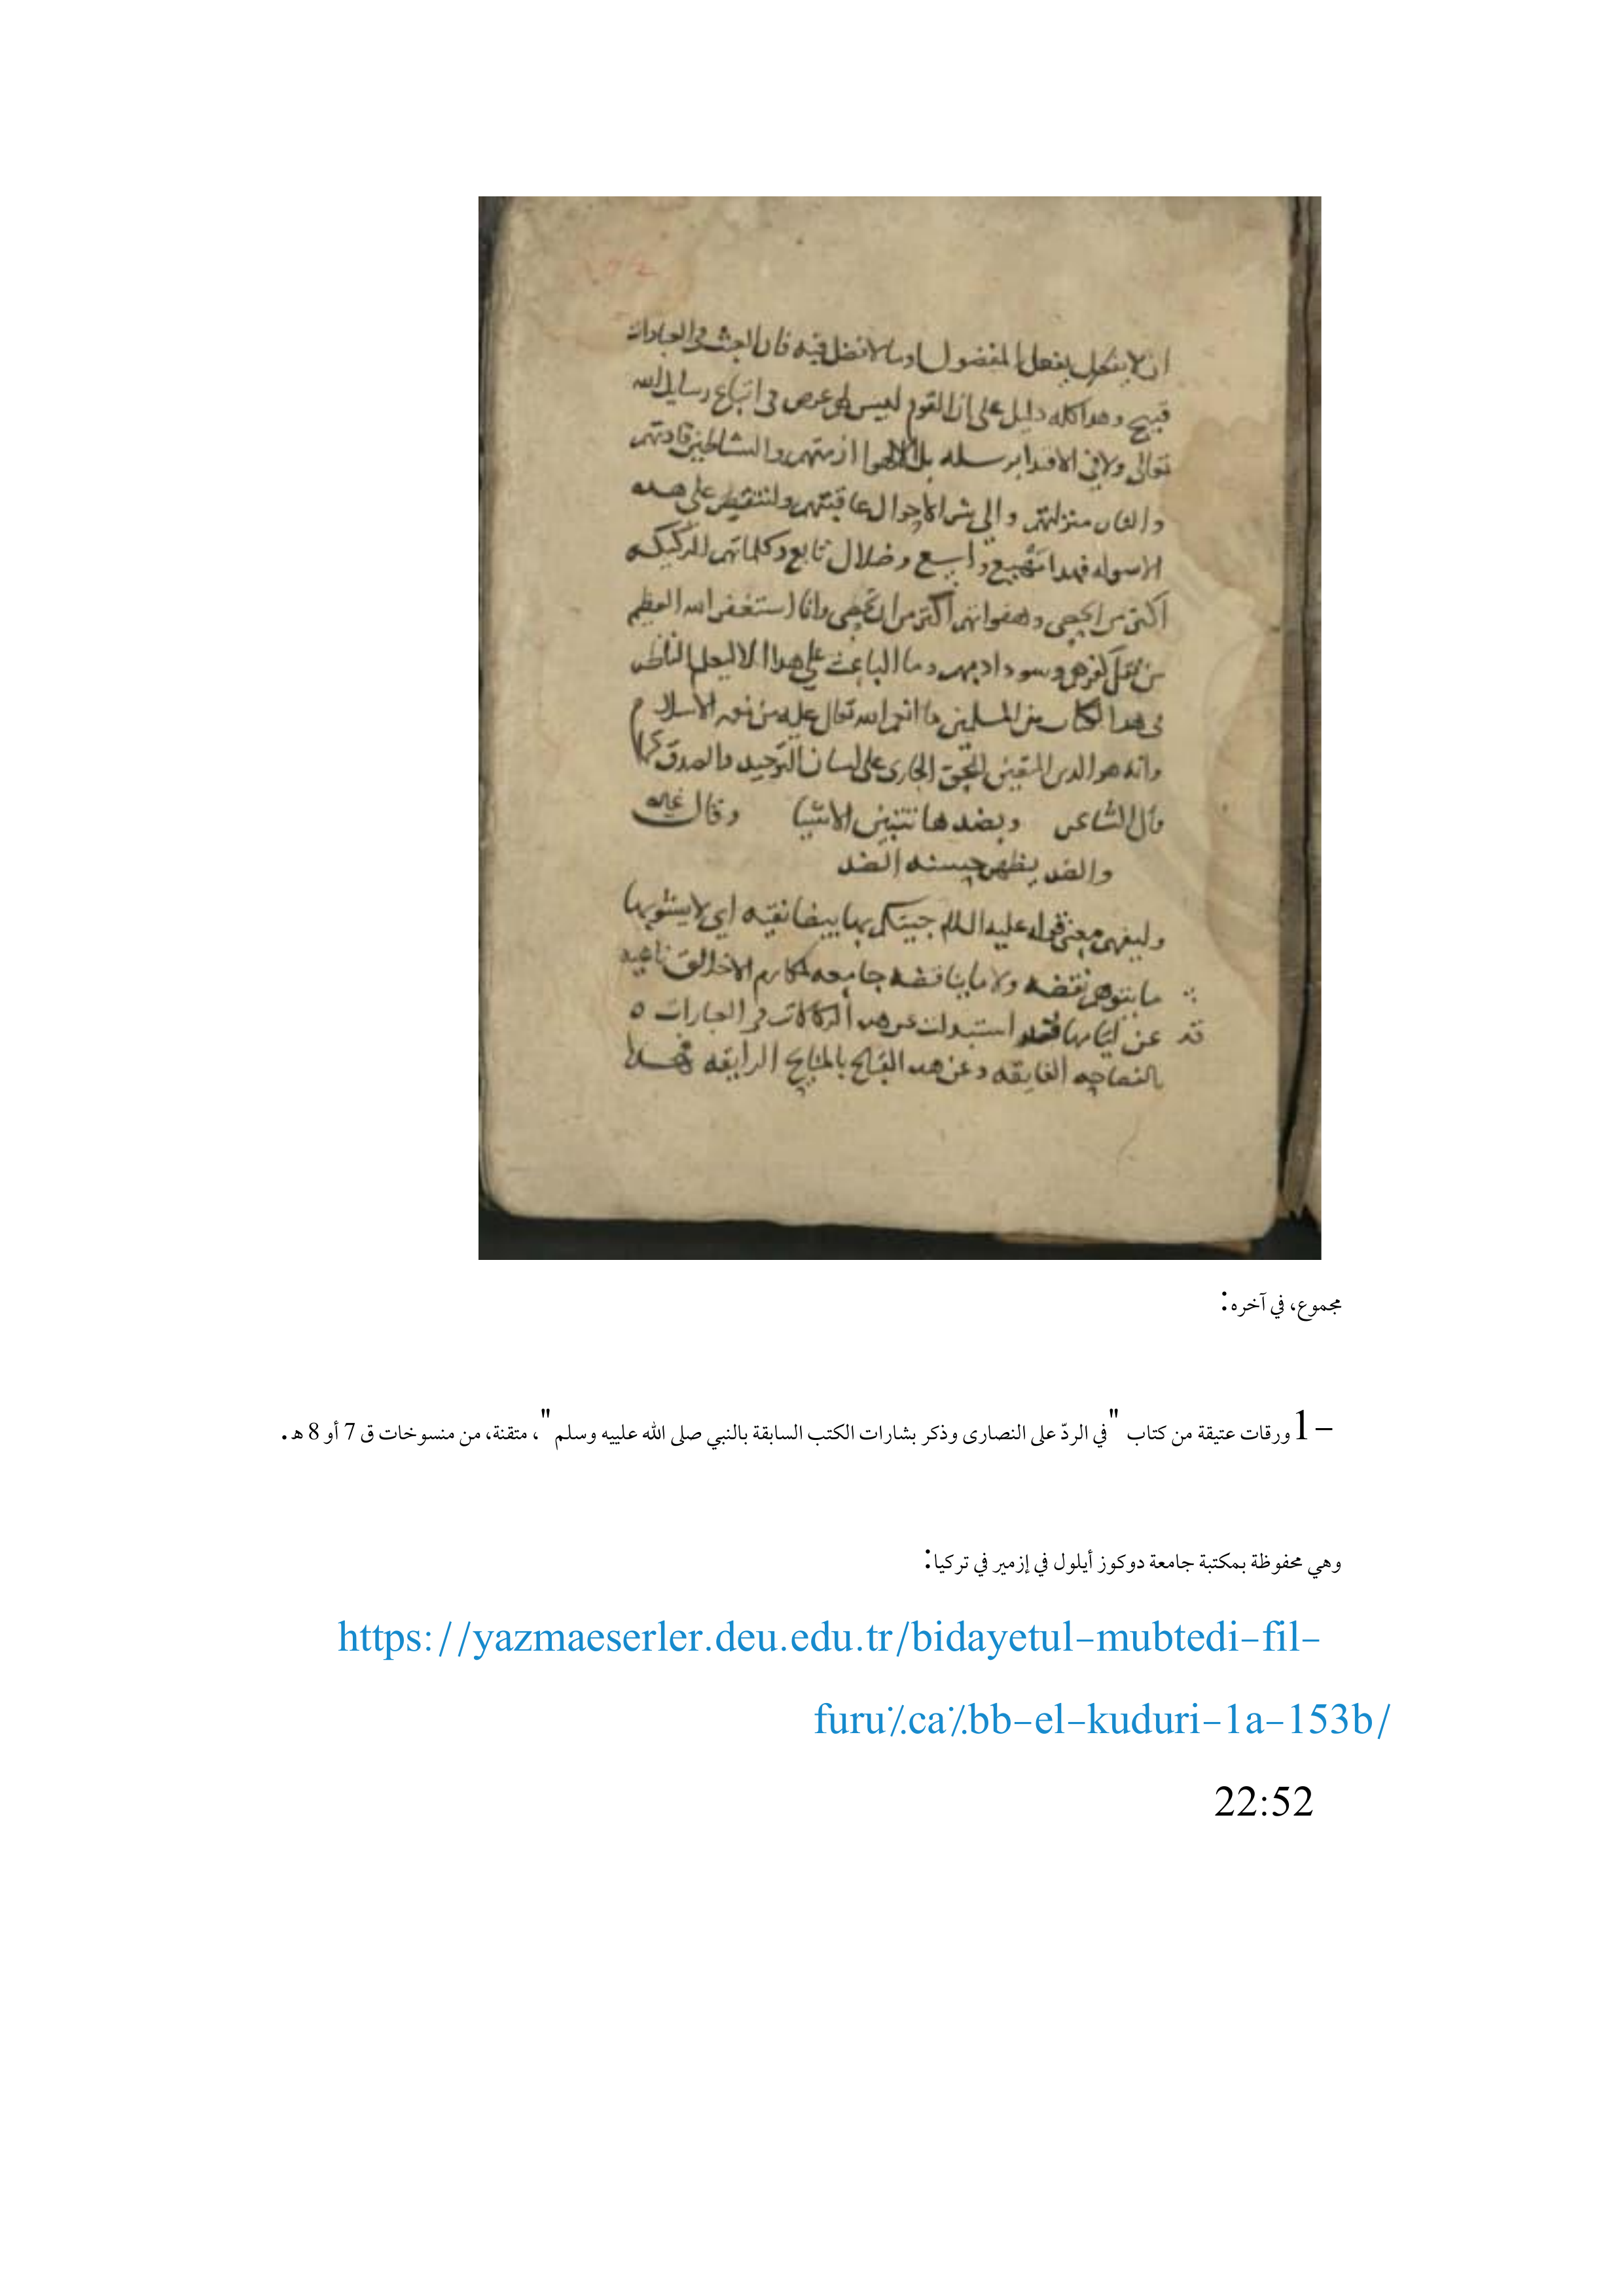 ان لا يتكل بفعل المفضول وما لا فضل فيه فان العبث في العبادات
قبيح وهدا كله دليل على ان القوم ليس لهم غرض في اتباع رسايل الله
تعالى ولا في الاقتدا برسله بل ازمتهم والشياطين قادتهم
منزلتهم والى شر الاحوال عاقبتهم ولنقتصر على هده
الاسوله فهدا مهيع واسع وضلال تابع وكلماتهم الركيكه
اكثر من ان تحصى وهفواتهم اكثر من ان وانا استغفر الله العظيم
من نقل كفرهم وسو ادبهم وما الباعث على هدا الا ليعلم الناظر
في هدا الكتاب من المسلمين ما انعم الله تعالى عليه من نعمه الاسلام
وانه هو الدين المتعين الحق الجارى على لسان التوحيد والصدق كما
قال الشاعر وبضدها تتبين الاشيا وقال غيره
والضد يظهر حسنه الضد
وليفهم معنى قوله عليه السلام جيتكم بها بيضا نقيه اي لا يشوبها
ما يتوهم نقضه ولا ما يناقضه جامعه لمكارم الاخلاق
قد عن استبدلت عن هده الركاكات في العبارات ه
بالفصاحه الفايقه وعن هده القبايح بالمدايح الرايقه
مجموع، في آخره:
1- ورقات عتيقة من كتاب "في الردّ على النصارى وذكر بشارات الكتب السابقة بالنبي صلى الله علييه وسلم"، متقنة، من منسوخات ق 7 أو 8 هـ.
وهي محفوظة بمكتبة جامعة دوكوز أيلول في إزمير في تركيا:
https://yazmaeserler.deu.edu.tr/bidayetul-mubtedi-fil-
furu%ca%bb-el-kuduri-1a-153b/
22:52